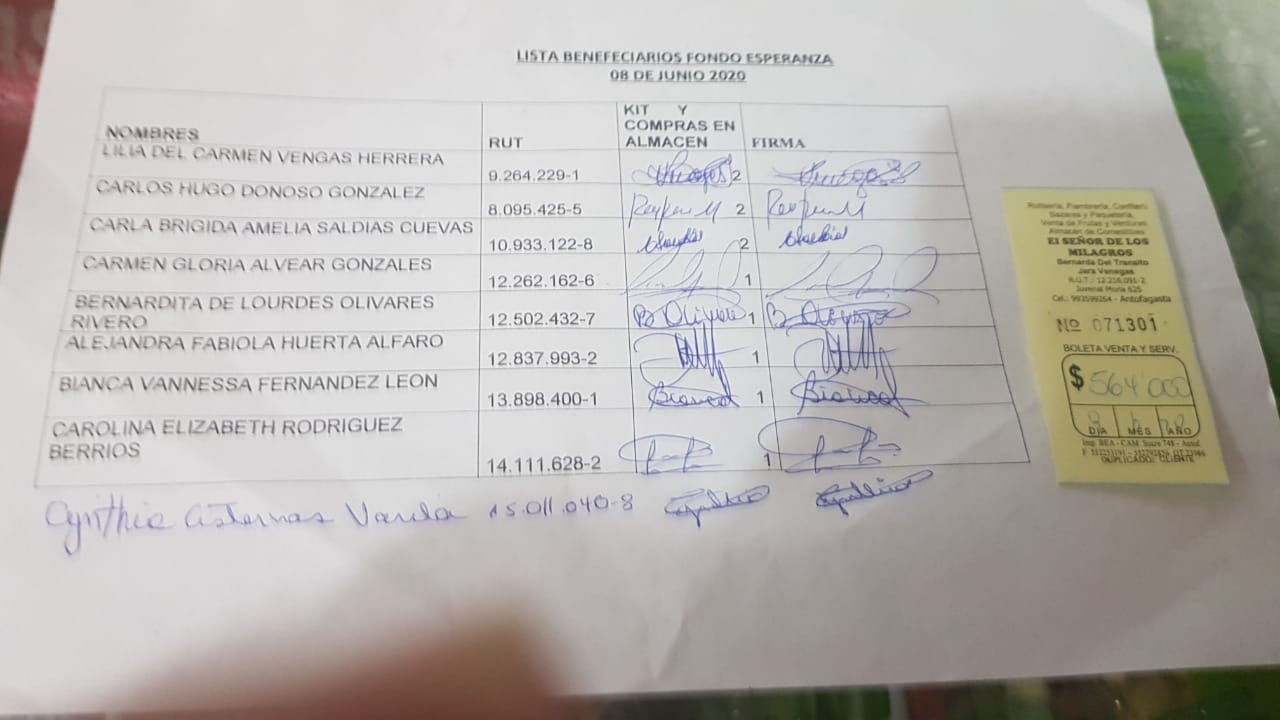 LISTA BENEFECIARIOS FONDO ESPERANZA
08 DE JUNIO 2020
NOMBRES RUT KIT Y COMPRAS EN ALMACEN FIRMA
LILIA DEL CARMEN VENGAS HERRERA 9.264.229-1 2
CARLOS HUGO DONOSO GONZALEZ 8.095.425-5 2
CARLA BRIGIDA AMELIA SALDIAS CUEVAS 10.933.122-8 2
CARMEN GLORIA ALVEAR GONZALES 12.262.162-6 1
BERNARDITA DE LOURDES OLIVARES RIVERO 12.502.432-7 B Olivares 1
ALEJANDRA FABIOLA HUERTA ALFARO 12.837.993-2 1
BIANCA VANNESSA FERNANDEZ LEON 13.898.400-1 Bianca 1 Bianca
CAROLINA ELIZABETH RODRIGUEZ BERRIOS 14.111.628-2 1
Cynthia Cisternas Varela 15.011.040-8
Rotisería, Fiambrería, Confitería
Bazares y Paquetería,
Venta de Frutas y Verduras
Almacén de Comestibles
El SEÑOR DE LOS
MILAGROS
Bernarda Del Transito
Jara Venegas
R.U.T.: 12.216.091-2
Juvenal Morla 625
Cel.: 993599264 - Antofagasta
Nº 071301
BOLETA VENTA Y SERV.
$ 564000
DIA MES AÑO
DUPLICADO: CLIENTE